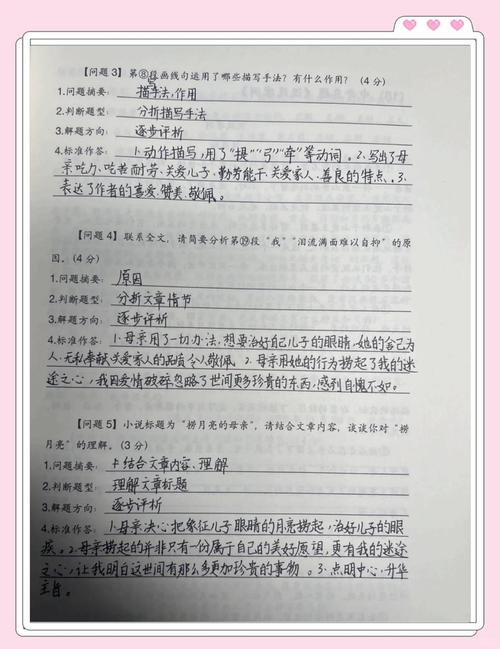 【问题 3】第⑧段画线句运用了哪些描写手法？有什么作用？（4 分）
1.问题摘要：描写手法,作用
2.判断题型：分析描写手法
3.解题方向：逐步评析
4.标准作答：1.动作描写，用了“提”“弓”“牵”等动词。2、写出了母
亲吃力、吃苦耐劳、关爱儿子、勤劳能干、关爱家人、善良的特点。3、
表达了作者的喜爱、赞美、敬佩。
【问题 4】联系全文，请简要分析第⑲段“我”“泪流满面难以自抑”的原
因。（4 分）
1.问题摘要：原因
2.判断题型：分析文章情节
3.解题方向：逐步评析
4.标准作答：1.母亲用了一切办法，想要治好自己儿子的眼睛，她的舍己为
人、无私奉献、关爱家人的品质令人敬佩。2.母亲用她的行为捞起了我的迷
途之心，我因爱情破碎忽略了世间更多珍贵的东西，感到自愧不如。
【问题 5】小说标题为“捞月亮的母亲”，请结合文章内容，谈谈你对“捞
月亮”的理解。（3 分）
1.问题摘要：结合文章内容、理解
2.判断题型：理解文章标题
3.解题方向：逐步评析
4.标准作答：1.母亲决心把象征儿子眼睛的月亮捞起，治好儿子的眼
疾。2.母亲捞起的并非只有一份属于自己的美好愿望，更有我的迷途
之心，让我明白这世间有那么多更加珍贵的事物。3、点明中心，升华
主旨。